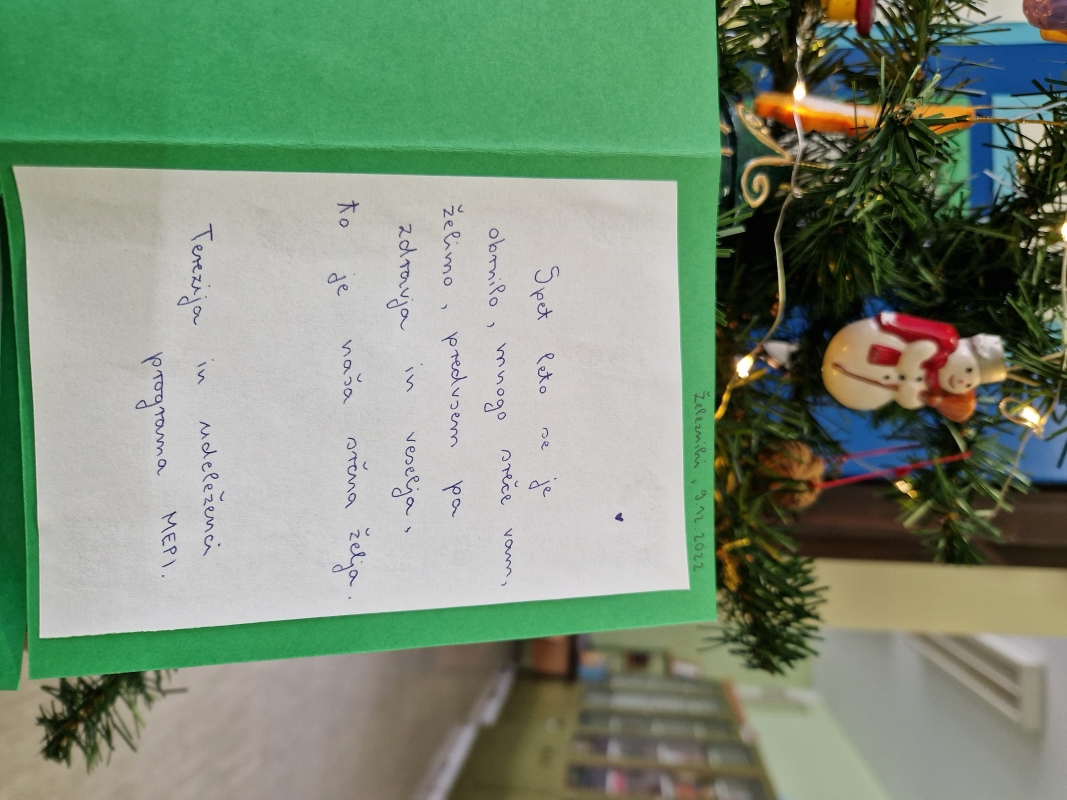 Železniki, 9.12.2022
Spet leto se je
obrnilo, mnogo sreče vam,
želimo, predvsem pa
zdravja in veselja,
to je naša srčna želja.
Terezija in udeleženci
programa MEPI.